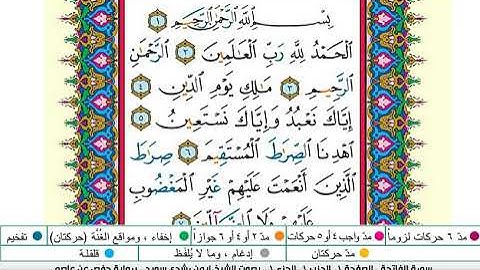 بِسْمِ ٱللَّهِ ٱلرَّحْمَٰنِ ٱلرَّحِيمِ ١
ٱلْحَمْدُ لِلَّهِ رَبِّ ٱلْعَٰلَمِينَ ٢ ٱلرَّحْمَٰنِ
ٱلرَّحِيمِ ٣ مَٰلِكِ يَوْمِ ٱلدِّينِ ٤
إِيَّاكَ نَعْبُدُ وَإِيَّاكَ نَسْتَعِينُ ٥
ٱهْدِنَا ٱلصِّرَٰطَ ٱلْمُسْتَقِيمَ ٦ صِرَٰطَ
ٱلَّذِينَ أَنْعَمْتَ عَلَيْهِمْ غَيْرِ ٱلْمَغْضُوبِ
عَلَيْهِمْ وَلَا ٱلضَّآلِّينَ ٧
مدّ ٦ حركات لزوماً مدّ واجب ٤ أو ٥ حركات مدّ ٢ أو ٤ أو ٦ جوازاً إخفاء، ومواقع الغُنَّة (حركتان) تفخيم
مدّ حركتان إدغام، وما لا يُلفَظ قلقلة